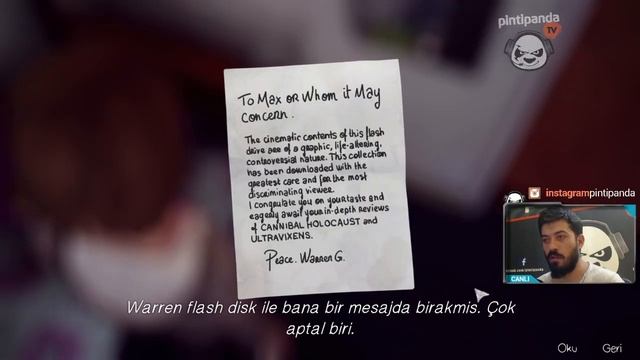 pintipanda
TV
To Max or Whom it May
concern.
The cinematic contents of this flash
drive are of a graphic, life-altering,
controversial nature. This collection
has been downloaded with the
greatest care and for the most
discriminating viewer.
I congratulate you on your taste and
eagerly await your in-depth reviews
of CANNIBAL HOLOCAUST and
ULTRAVIXENS.
Peace. Warren G.
instagrampintipanda
CANLI
Warren flash disk ile bana bir mesajda birakmis. Çok
aptal biri.
Oku Geri